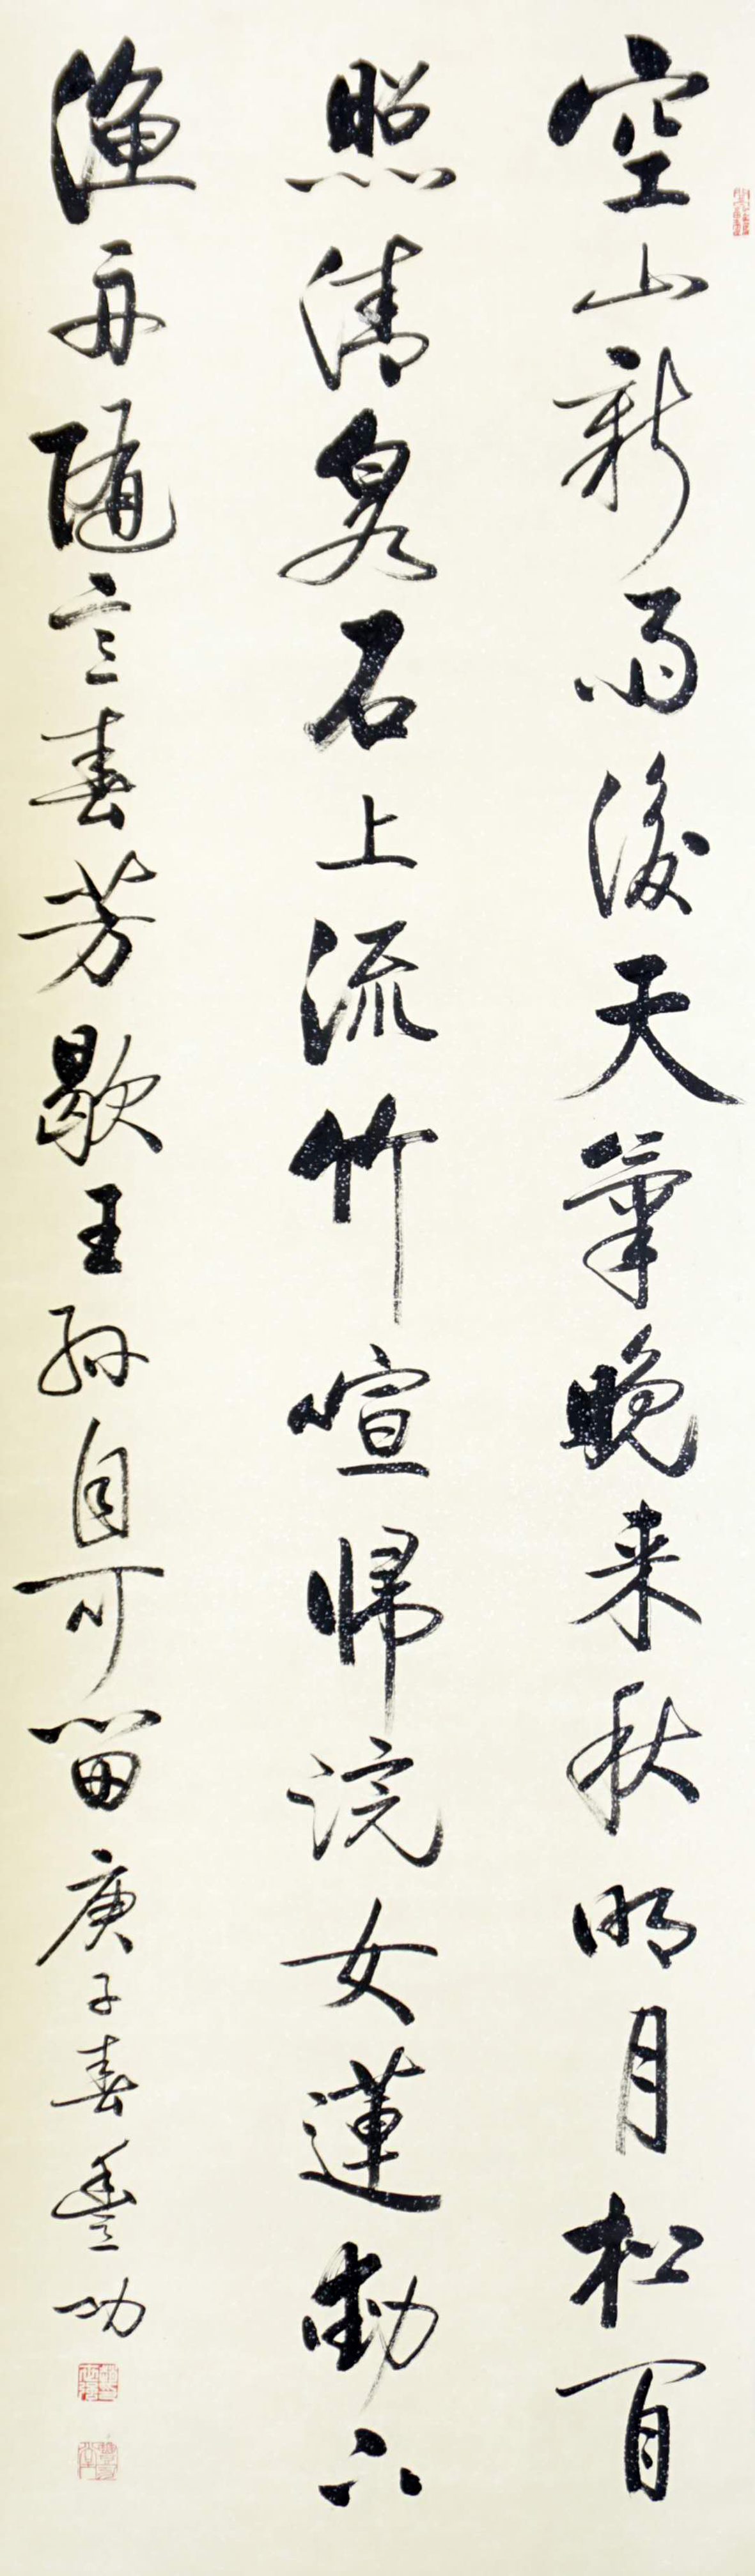 空山新雨後天氣晚来秋明月松間
照清泉石上流竹喧帰浣女蓮動下
漁舟随意春芳歇王孫自可留庚子春豊功